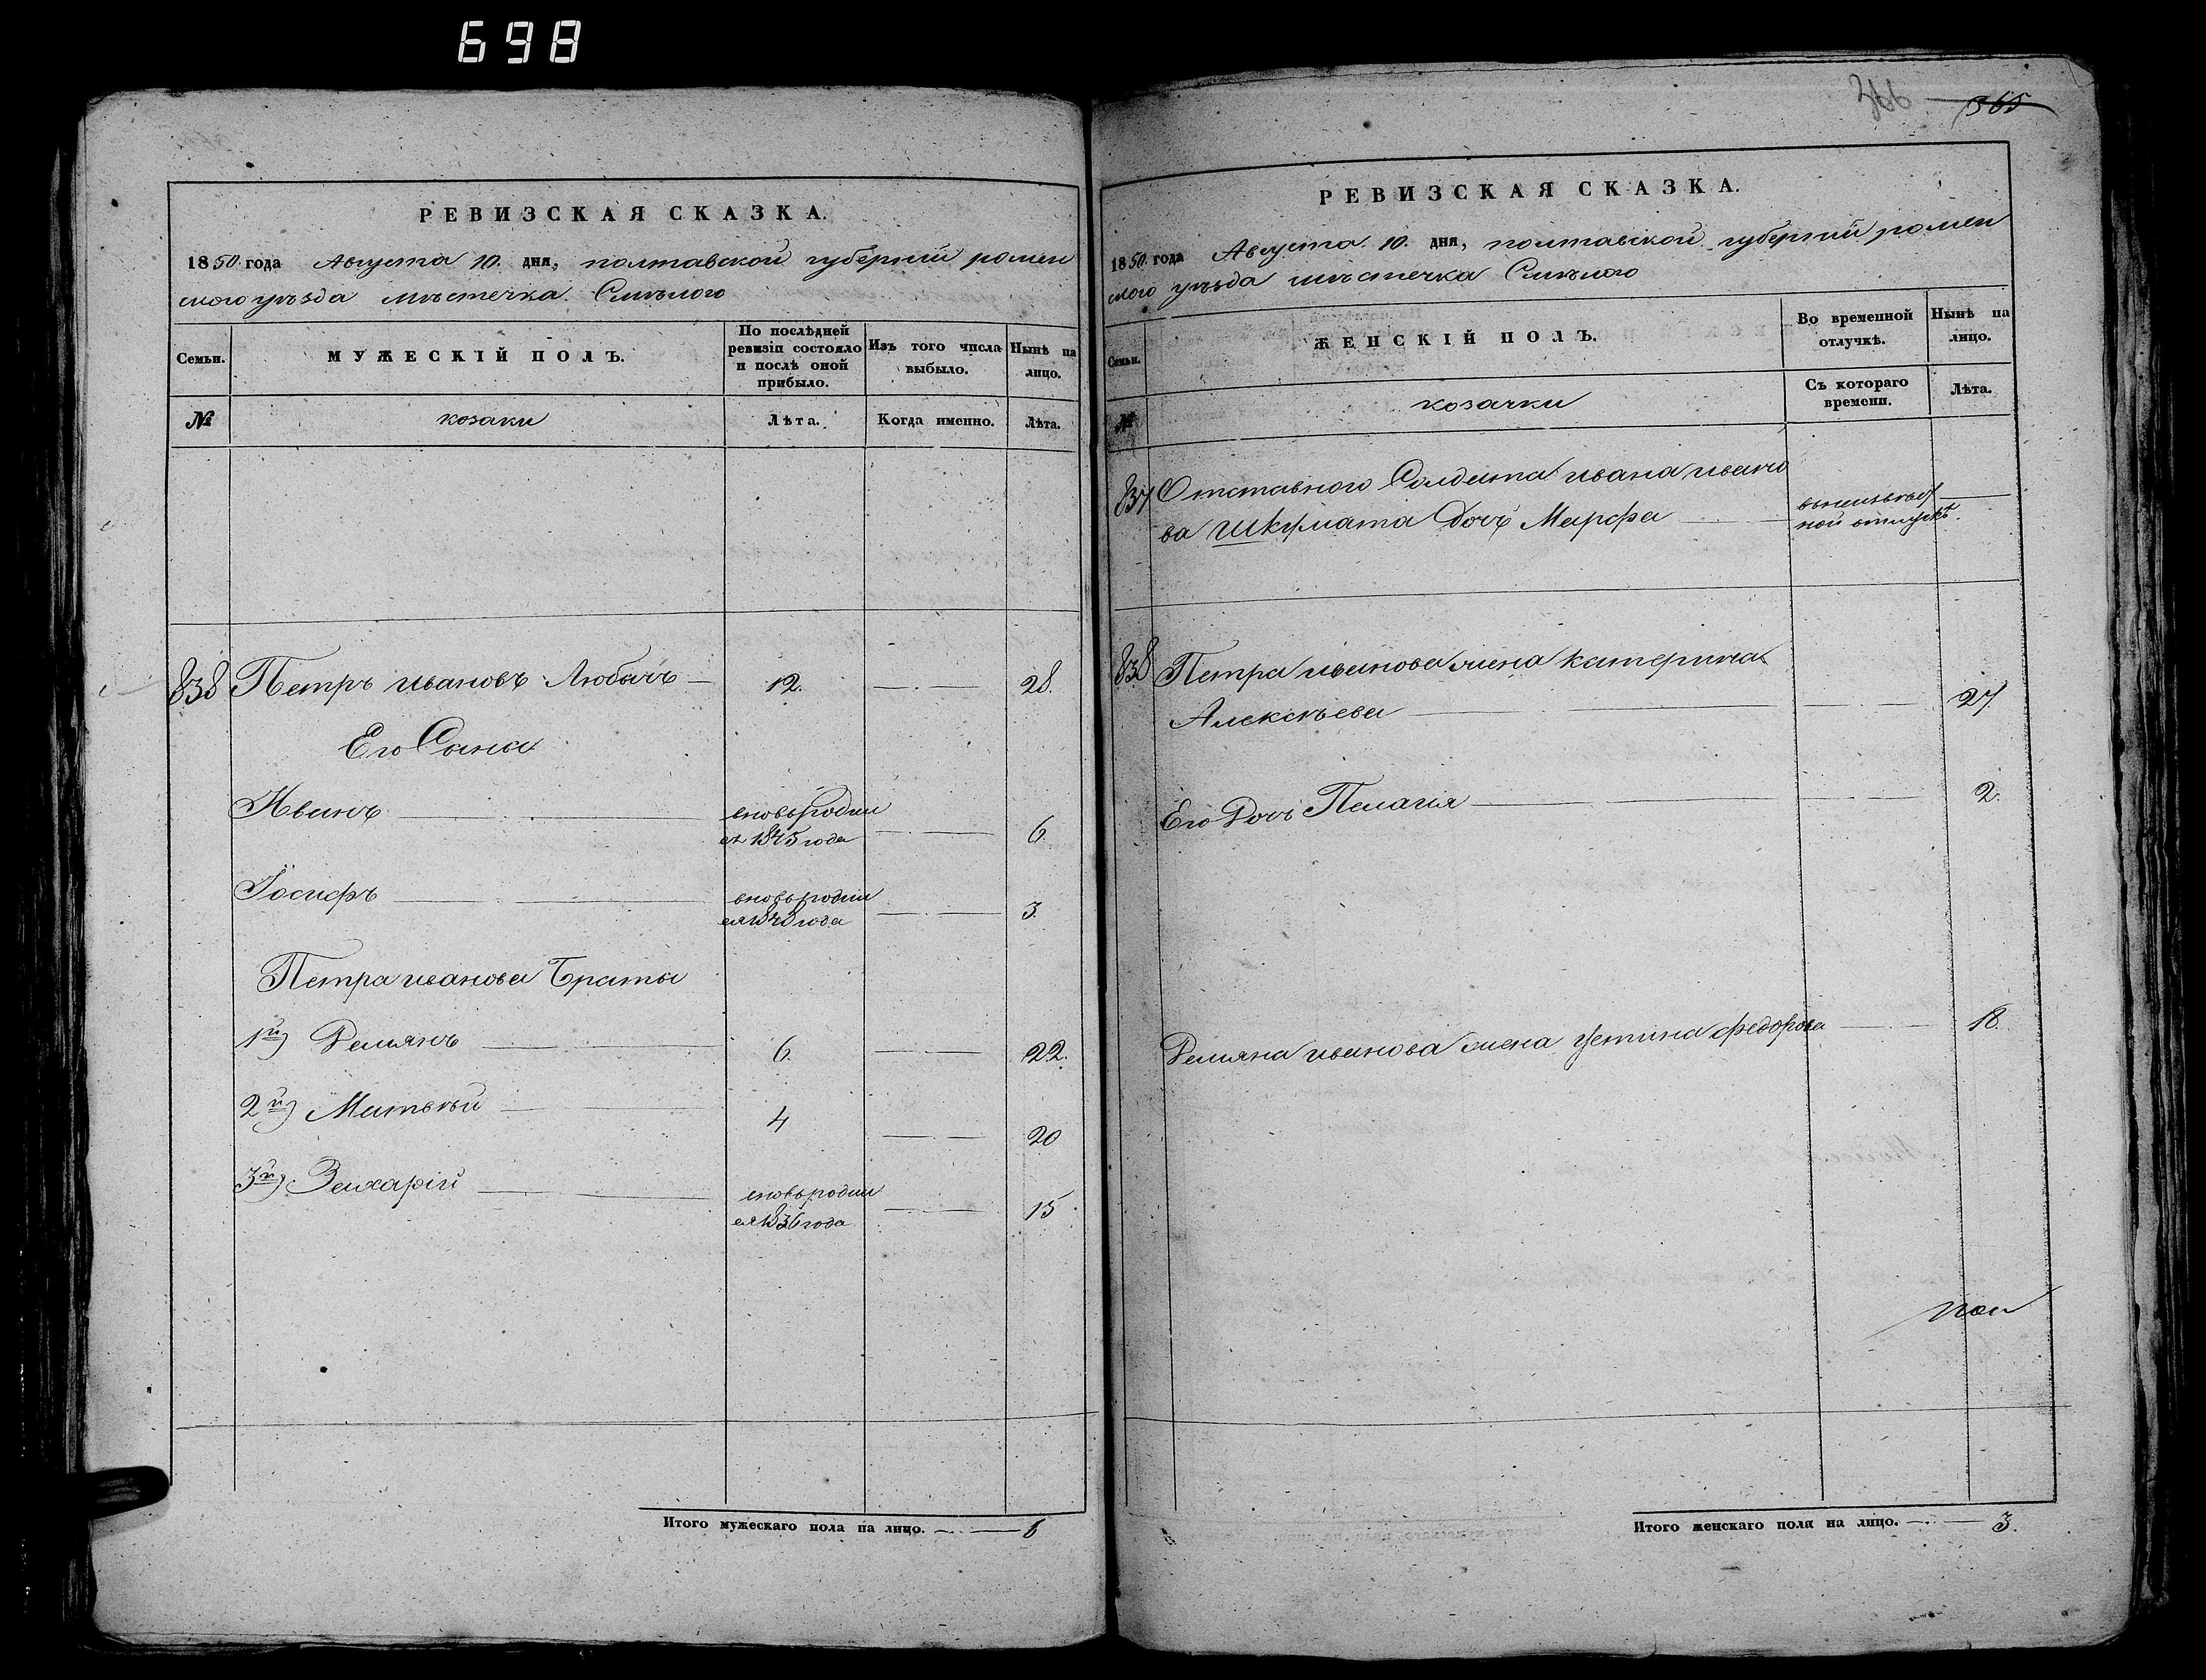 698
РЕВИЗСКАЯ СКАЗКА.
1850 года Августа 10. дня, полтавской губерніи ромен
ского уѣзда мѣстечка Смѣлого
Семьи.
МУЖЕСКІЙ ПОЛЪ.
По послѣдней
ревизіи состояло
и послѣ оной
прибыло.
Изъ того числа
выбыло.
Нынѣ на
лицо.
№
козаки
Лѣта.
Когда именно.
Лѣта.
838 Петръ ивановъ Любычъ — 12. — 28.
Его Сына
Иванъ — вновьродил
ся 1845 года — 6.
Іосифъ — вновьродил
ся 1848 года — 3.
Петра иванова Браты
1й) Демянъ — 6. — 22.
2й) Матвѣй — 4 — 20
3й) Захарій — вновьродил
ся 1836 года — 15
Итого мужескаго пола на лицо. — 6
366 365
РЕВИЗСКАЯ СКАЗКА.
1850 года Августа 10. дня, полтавской губерніи ромен
ского уѣзда мѣстечка Смѣлого
Семьи.
ЖЕНСКІЙ ПОЛЪ.
Во временной
отлучкѣ.
Нынѣ на
лицо.
№
козачки
Съ котораго
времени.
Лѣта.
837 Отставного Солдата ивана ивано
ва Шкурмата Дочь Марфа — внеизвѣст
ной отлучкѣ. —
838 Петра иванова жена катерина
Алексѣева — 27
Его Дочь Пелагія — 2.
Демяна иванова жена Устина федорова — 18.
Итого женскаго пола на лицо. — 3.